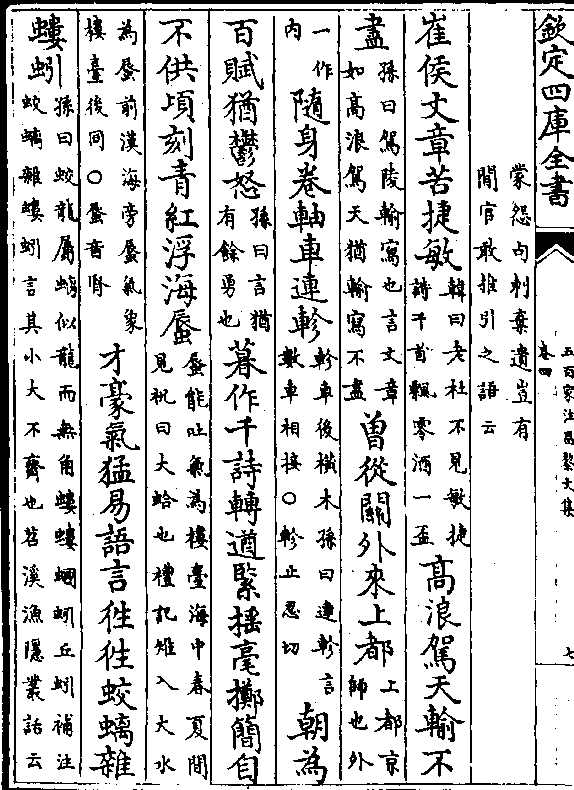 欽定四庫全書
五百家注昌黎文集
卷四
七
蒙怨句刺棄遺豈有
間官敢推引之語云
崔侯文章苦捷敏
韓曰老杜不見敏捷
詩千首飄零酒一盃
高浪駕天輸不
盡
孫曰駕陵輸寫也言文章
如高浪駕天猶輸寫不盡
曾從關外來上都
上都京
師也外
一作
内
隨身卷軸車連軫
軫車後橫木孫曰連軫言
數車相接○軫止忍切
朝為
百賦猶鬱怒
孫曰言猶
有餘勇也
暮作千詩轉遒緊揺毫擲簡自
不供頃刻青紅浮海蜃
蜃能吐氣為樓臺海中春夏間
見祝曰大蛤也禮記雉入大水
為蜃前漢海旁蜃氣象
樓臺後同○蜃音腎
才豪氣猛易語言徃徃蛟螭雜
螻蚓
孫曰蛟龍屬螭似龍而無角螻螻蟈蚓丘蚓補注
蛟螭雜螻蚓言其小大不齊也苕溪漁隱叢話云